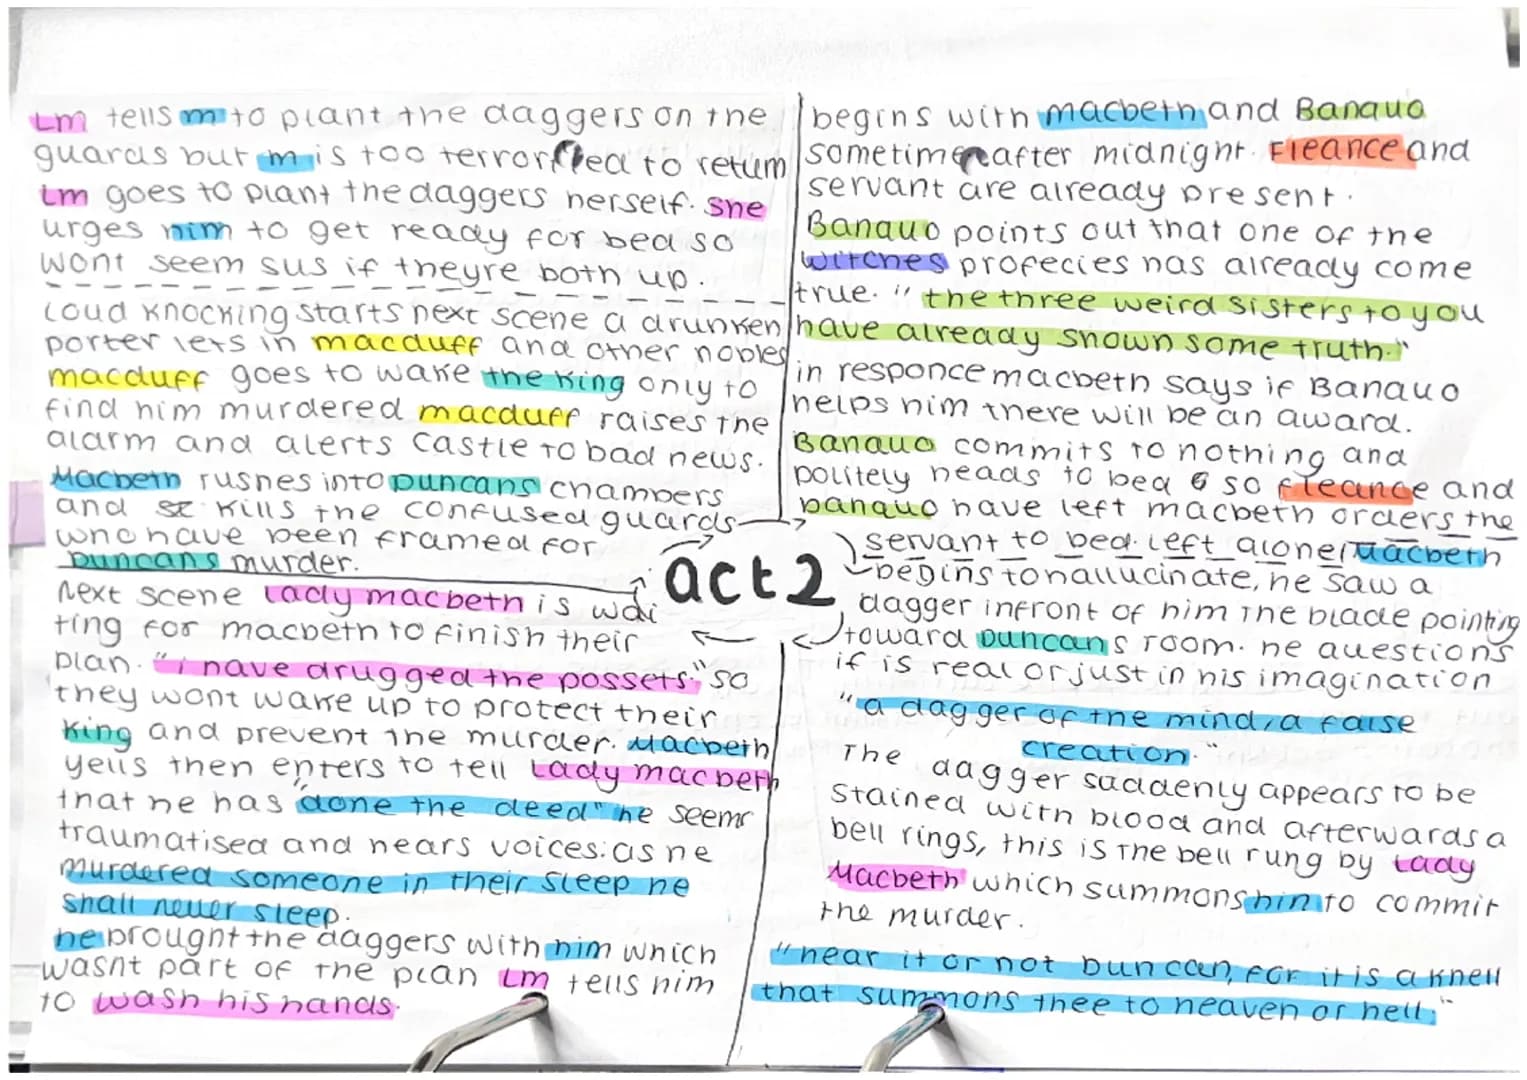 begins with macbeth and Banquo
sometime after midnight. Fleance and
servant are already present.
Banquo points out that one of the
witches profecies has already come
true. "the three weird sisters to you
have already shown some truth."
in responce macbeth says if Banquo
helps him there will be an award.
Banquo commits to nothing and
politely heads to bed so fleance and
banquo have left macbeth orders the
servant to bed. left alone, Macbeth
begins to hallucinate, he saw a
dagger infront of him the blade pointing
toward Duncans room. he questions
if is real or just in his imagination
"a dagger of the mind, a false
creation."
The dagger suddenly appears to be
stained with blood and afterwards a
bell rings, this is the bell rung by Lady
Macbeth which summons him to commit
the murder.
"hear it or not Duncan, for it is a knell
that summons thee to heaven or hell."
act 2
Next scene Lady macbeth is wai
ting for macbeth to finish their
plan. "i have drugged the possets." so
they wont wake up to protect their
king and prevent the murder. Macbeth
yells then enters to tell Lady macbeth
that he has "done the deed" he seems
traumatised and hears voices: as he
murdered someone in their sleep he
shall never sleep.
he brought the daggers with him which
wasnt part of the plan Lm tells him
to wash his hands.
Lm tells m to plant the daggers on the
guards but m is too terrorified to return
Lm goes to plant the daggers herself. she
urges him to get ready for bed so
wont seem sus if theyre both up.
Loud knocking starts next scene a drunken
porter lets in macduff and other nobles
macduff goes to wake the king only to
find him murdered macduff raises the
alarm and alerts castle to bad news.
Macbeth rushes into Duncans chambers
and kills the confused guards
who have been framed for
Duncans murder.